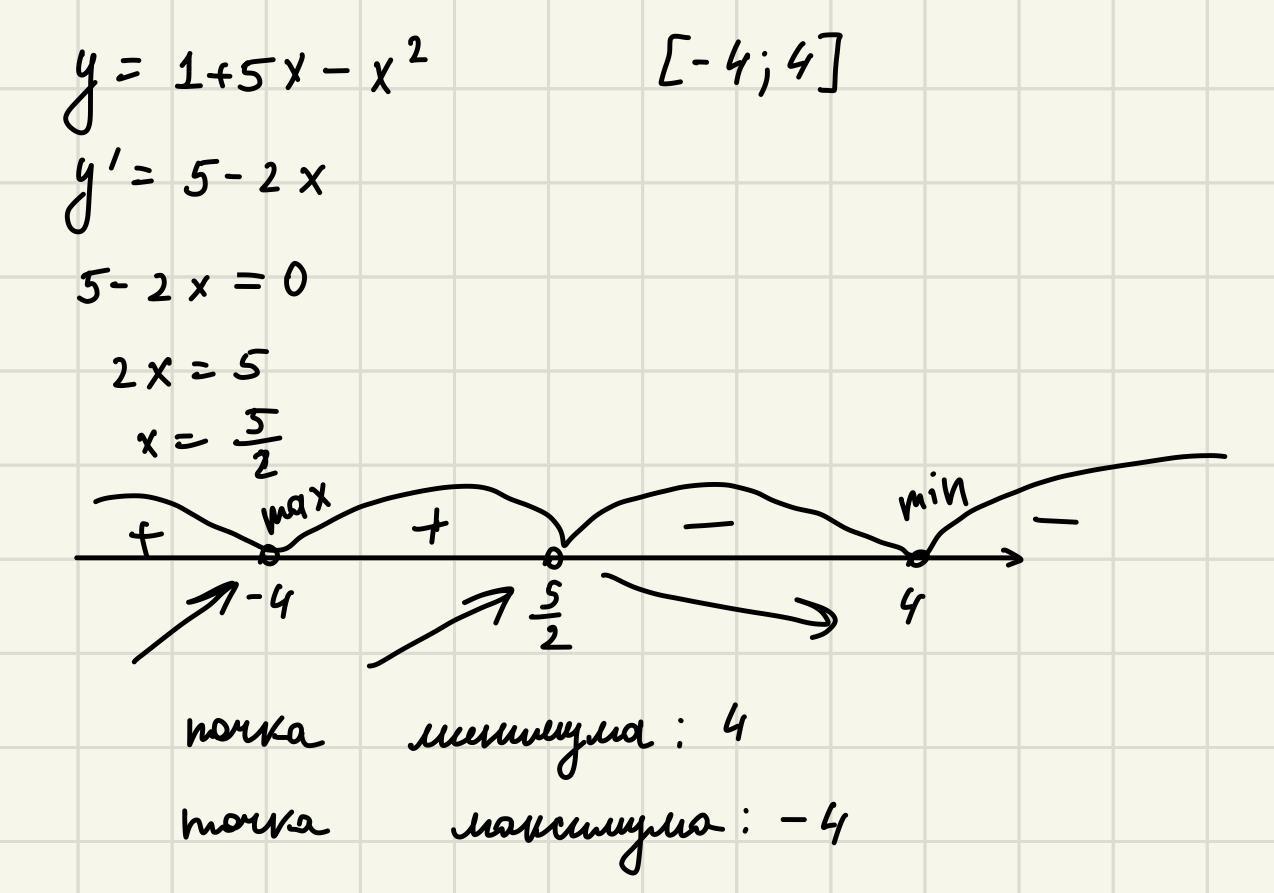 y = 1+5x - x² [-4; 4]
y' = 5 - 2x
5 - 2x = 0
2x = 5
x = 5/2
max min
+ + - -
-4 5/2 4
точка минимума: 4
точка максимума: -4